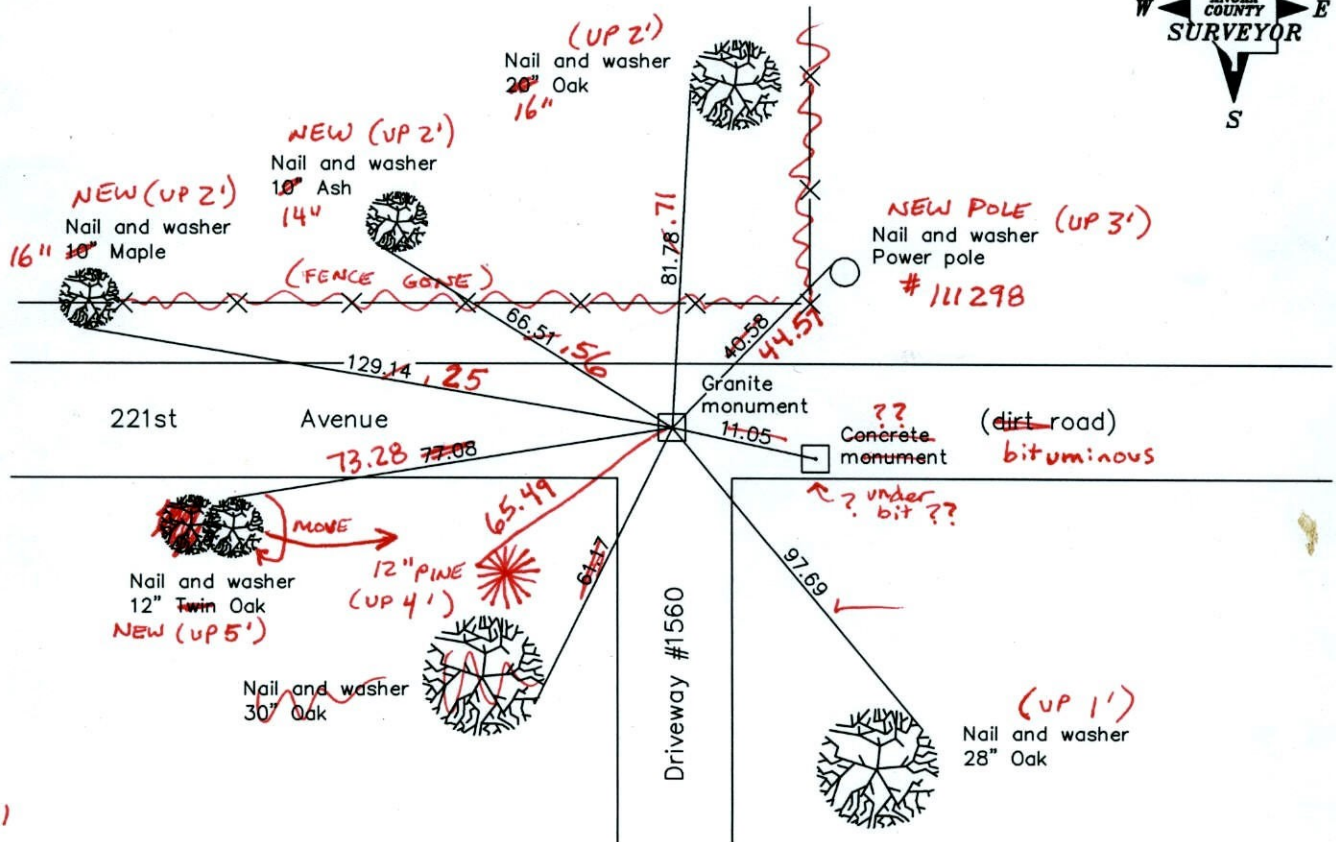 W
COUNTY
E
SURVEYOR
S
(UP 2')
Nail and washer
20" Oak
16"
NEW (UP 2')
Nail and washer
10" Ash
14"
NEW (UP 2')
Nail and washer
16" 10" Maple
NEW POLE (UP 3')
Nail and washer
Power pole
# 111298
(FENCE GONE)
81.78 .71
66.51 .56
40.58
44.57
129.14 .25
Granite
monument
11.05
??
Concrete
monument
(dirt road)
bituminous
221st Avenue
73.28 77.08
? under
bit ??
65.49
MOVE
12" PINE
(UP 4')
61.17
97.69
Nail and washer
12" Twin Oak
NEW (UP 5')
Nail and washer
30" Oak
Driveway #1560
(UP 1')
Nail and washer
28" Oak